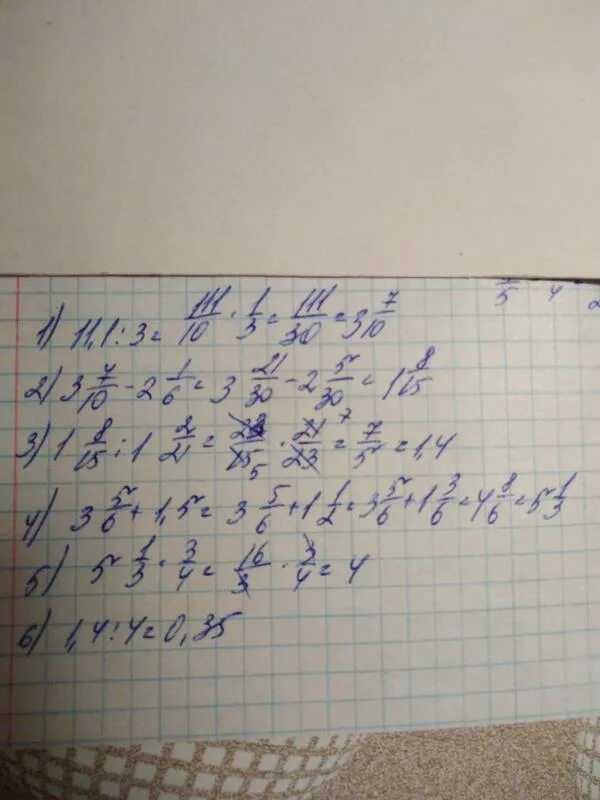 5 4 2
1) 11,1 : 3 = 111/10 · 1/3 = 111/30 = 3 7/10
2) 3 7/10 - 2 1/6 = 3 21/30 - 2 5/30 = 1 8/15
3) 1 8/15 : 1 2/21 = 23/15 5 · 21/23 7 = 7/5 = 1,4
4) 3 5/6 + 1,5 = 3 5/6 + 1 1/2 = 3 5/6 + 1 3/6 = 4 8/6 = 5 1/3
5) 5 1/3 · 3/4 = 16/3 · 3/4 = 4
6) 1,4 : 4 = 0,35